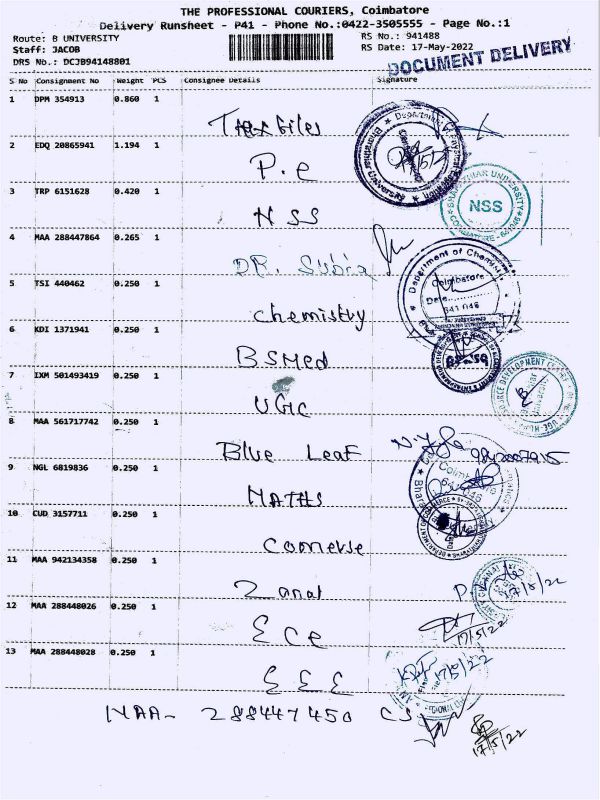 THE PROFESSIONAL COURIERS, Coimbatore
Delivery Runsheet - P41 - Phone No.:0422-3505555 - Page No.:1
Route: B UNIVERSITY
RS No.: 941488
Staff: JACOB
RS Date: 17-May-2022
DRS No.: DCJB94148801
DOCUMENT DELIVERY
S No Consignment No Weight PCS Consignee Details Signature
1 DPM 354913 0.860 1
2 EDQ 20865941 1.194 1 P.e
3 TRP 6151628 0.420 1 NSS
NSS
4 MAA 288447864 0.265 1 DR.
Department of Chemistry
Coimbatore
Date
641 046
5 TSI 440462 0.250 1 chemistry
6 KDI 1371941 0.250 1 BSMed
7 IXM 501493419 0.250 1 UGC
8 MAA 561717742 0.250 1 Blue Leaf
9 NGL 6819836 0.250 1 MATHS
10 CUD 3157711 0.250 1 Comerse
11 MAA 942134358 0.250 1 Zanal
17/5/22
12 MAA 288448026 0.250 1 ECE
17/5/22
13 MAA 288448028 0.250 1 EEE
17/5/22
MAA- 288447450 CS
17/5/22